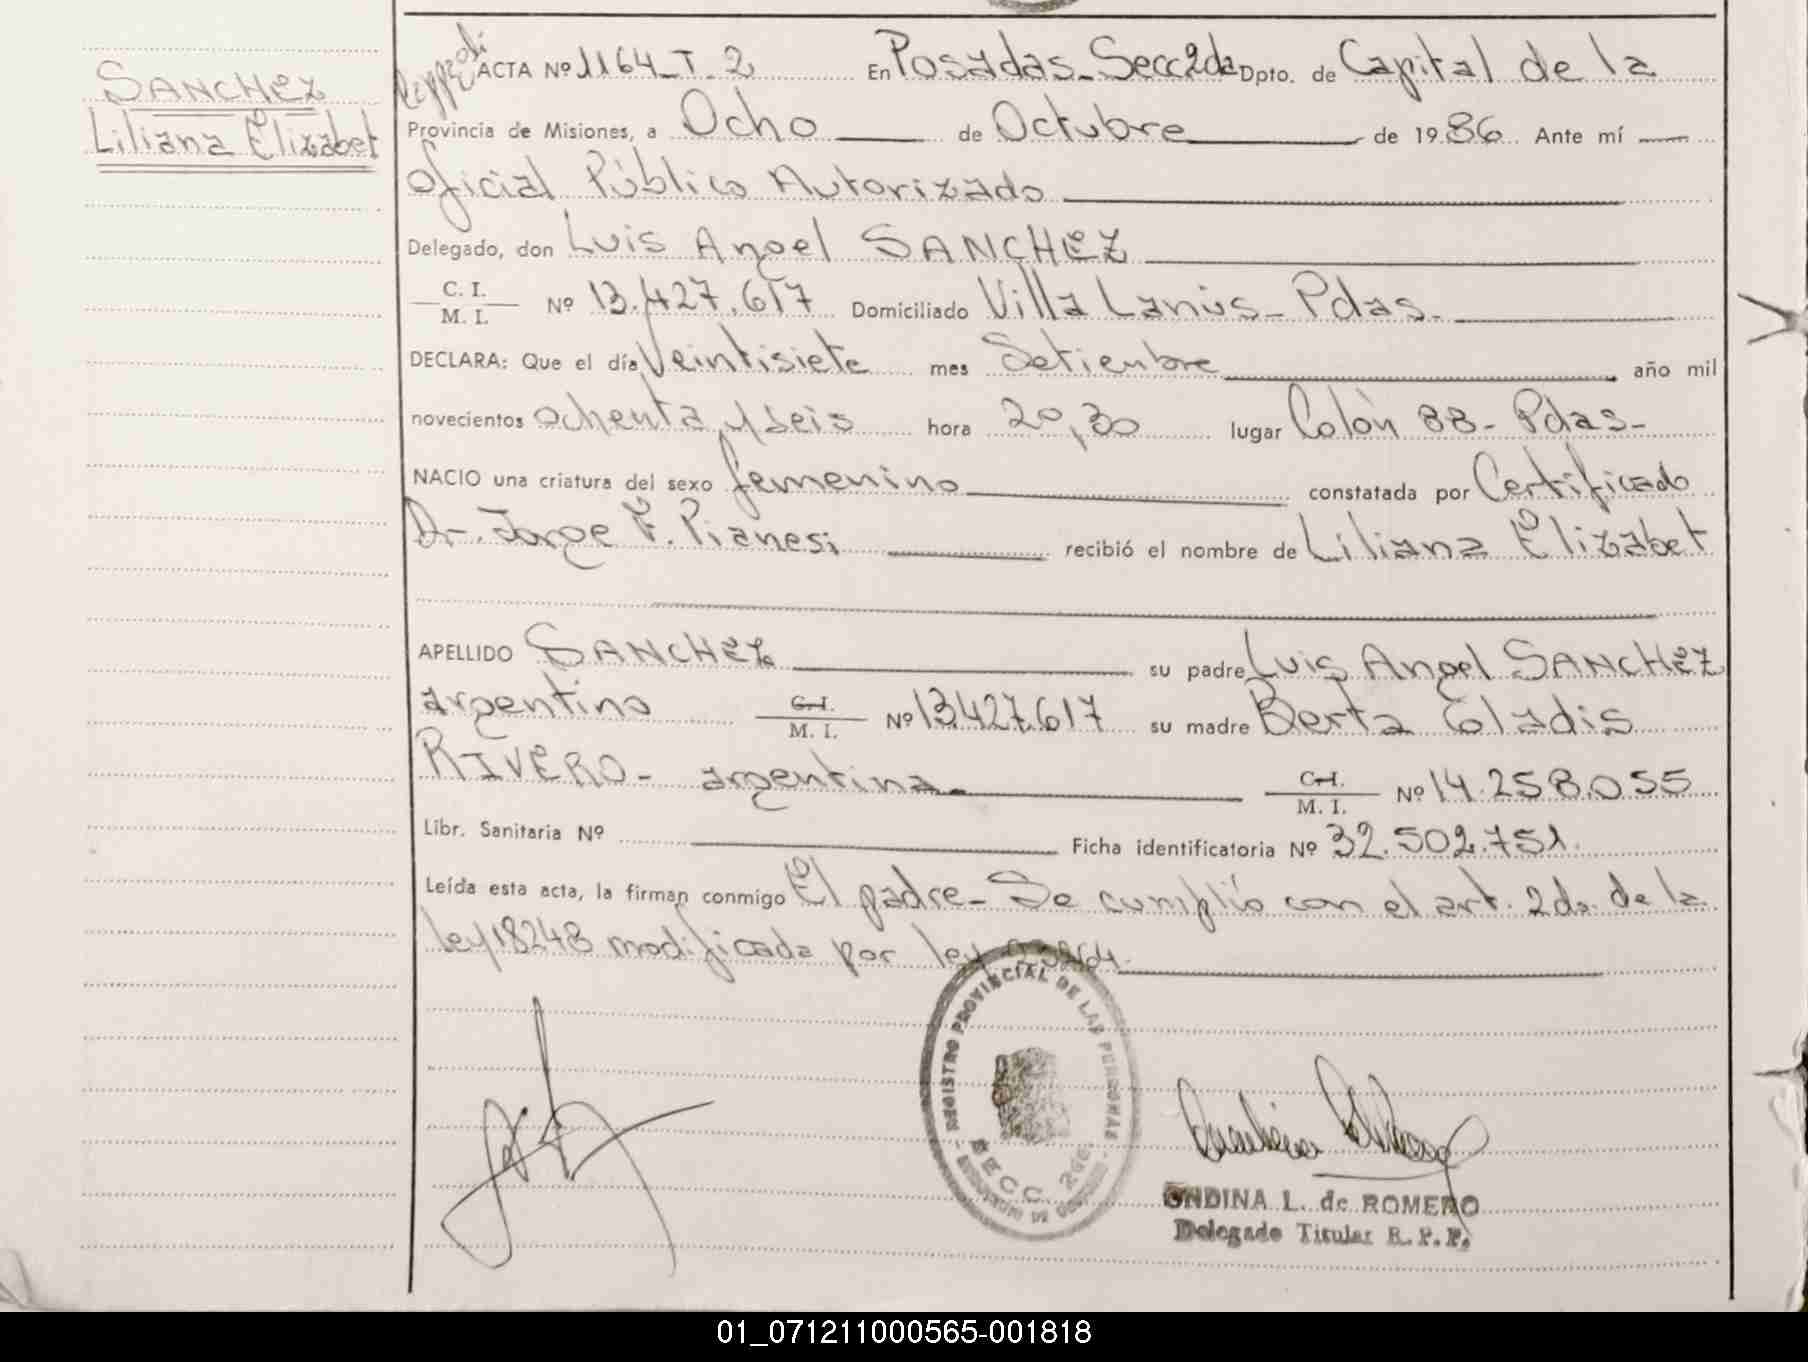 SANCHEZ
Liliana Elizabet
ACTA Nº 1164_T_2 En Posadas_Secc2da Dpto. de Capital de la
Provincia de Misiones, a Ocho de Octubre de 1986. Ante mí
Oficial Público Autorizado
Delegado, don Luis Angel SANCHEZ
C. I.
M. I. Nº 13.427.617 Domiciliado Villa Lanús_Pdas.
DECLARA: Que el día Veintisiete mes Setiembre año mil
novecientos ochenta y seis hora 20,30 lugar Colón 88- Pdas-
NACIO una criatura del sexo femenino constatada por Certificado
Dr. Jorge F. Pianesi recibió el nombre de Liliana Elizabet
APELLIDO SANCHEZ su padre Luis Angel SANCHEZ
argentino C.I.
M. I. Nº 13.427.617 su madre Berta Gladis
RIVERO- argentina. C.I.
M. I. Nº 14.258.055
Libr. Sanitaria Nº Ficha identificatoria Nº 32.502.751.
Leída esta acta, la firman conmigo El padre- Se cumplió con el art. 2do. de la
ley 18248 modificada por ley
REGISTRO PROVINCIAL DE LAS PERSONAS
SECC. 2da.
ONDINA L. de ROMERO
Delegado Titular R. P. P.
01_071211000565-001818